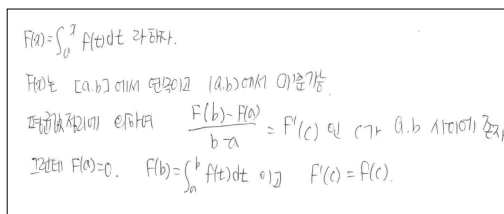 F(x)=∫_a^x f(t)dt 라 하자.
F(x)는 [a.b]에서 연속이고 (a.b)에서 미분가능.
평균값 정리에 의하여 \frac{F(b)-F(a)}{b-a} = F'(c) 인 c가 a.b 사이에 존재
그런데 F(a)=0. F(b)=∫_a^b f(t)dt 이고 F'(c)=f(c).